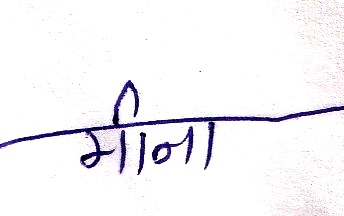 मीना